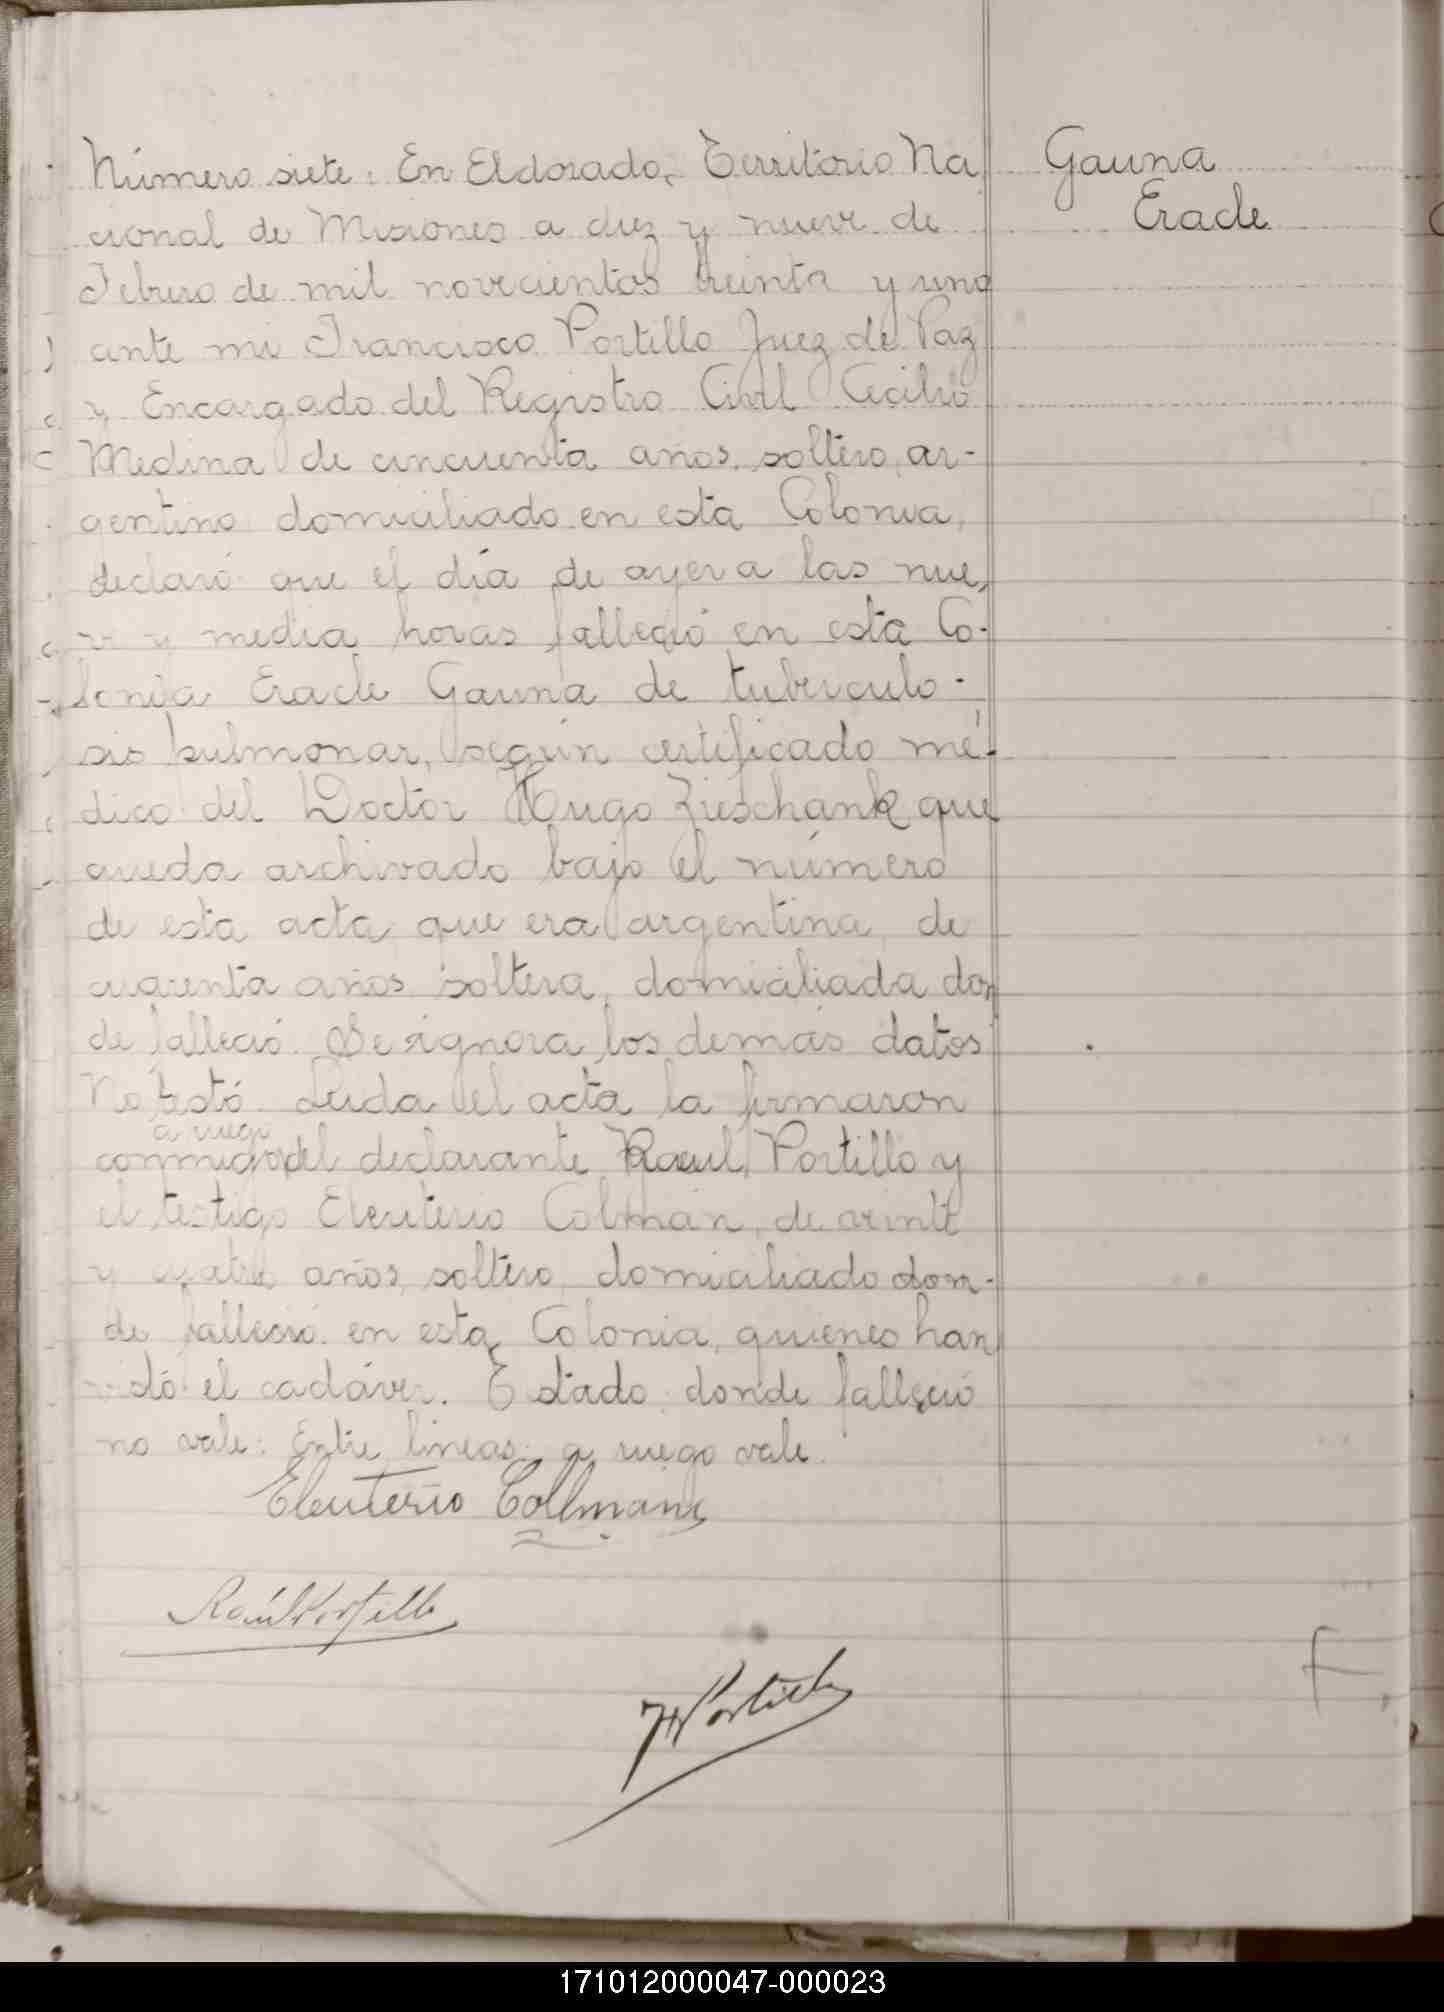 Número siete: En Eldorado, Territorio Na
cional de Misiones a diez y nueve de
Febrero de mil novecientos treinta y uno
ante mi Francisco Portillo Juez de Paz
y Encargado del Registro Civil Cecilio
Medina de cincuenta años, soltero, ar-
gentino domiciliado en esta Colonia,
declaró que el día de ayer a las nue,
ve y media horas falleció en esta Co-
lonia Eracle Gauna de tuberculo-
sis pulmonar, según certificado mé-
dico del Doctor Hugo Zieschank que
queda archivado bajo el número
de esta acta, que era argentina, de
cuarenta años soltera, domiciliada don
de falleció. Se ignora los demás datos
No testó. Leida el acta la firmaron
a ruego
conmigo del declarante Raul Portillo y
el testigo Eleuterio Colman, de veinte
y cuatro años, soltero, domiciliado don-
de falleció en esta Colonia, quienes han
visto el cadáver. Estado: donde falleció
no vale: Entre lineas: a ruego vale.
Eleuterio Collman
Raúl Portillo
F Portillo
Gauna
Eracle
F
171012000047-000023